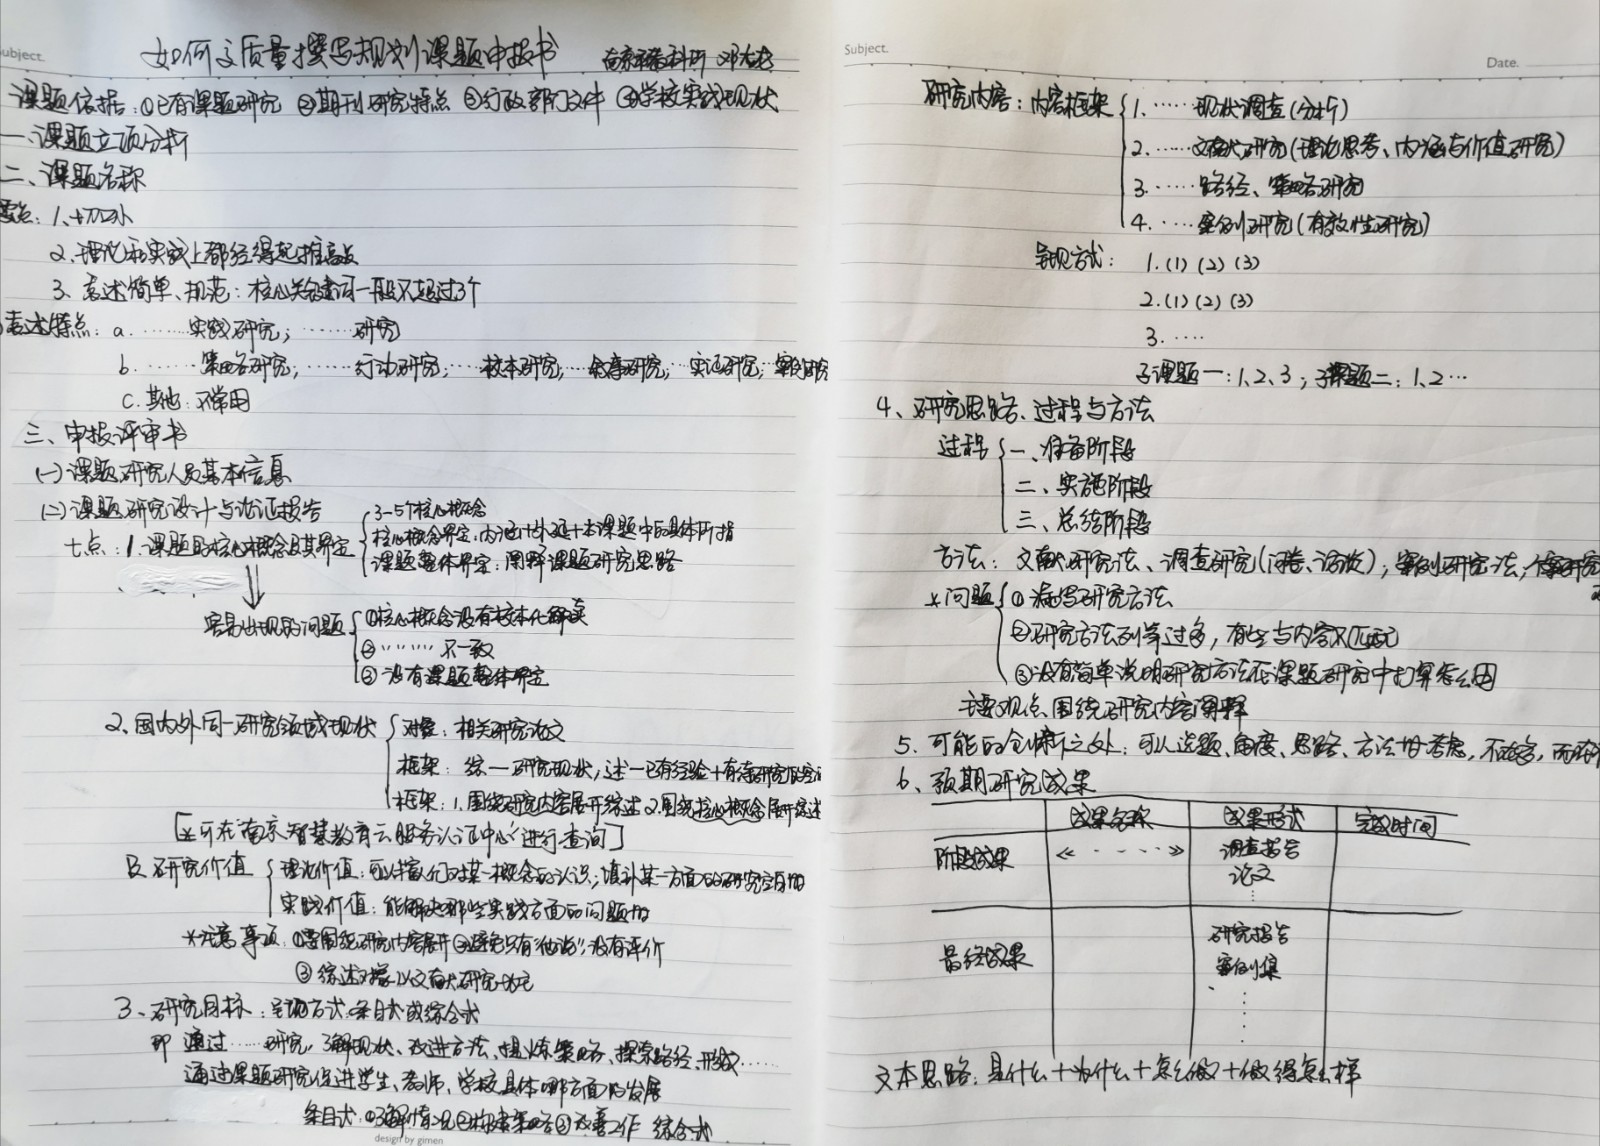 Subject.
如何高质量撰写规划课题申报书
课题依据：①已有课题研究 ②期刊研究特点 ③行政部门文件 ④学校实践现状
一、课题立项分析
二、课题名称
要点：1、切小
2、理论和实践上都经得起推敲
3、表述简单、规范：核心关键词一般不超过3个
表述特点：a. ……实践研究；……研究
b. ……策略研究；……行动研究；…校本研究；…叙事研究；…实证研究；案例研究
c. 其他：不常用
三、申报评审书
(一)课题研究人员基本信息
(二)课题研究设计与论证报告
七点：1.课题的核心概念及其界定
3-5个核心概念
核心概念界定：内涵+外延+本课题中的具体所指
课题整体界定：阐释课题研究思路
容易出现的问题
①核心概念没有校本化解读
② …… 不一致
③没有课题整体界定
2、国内外同一研究领域现状
对象：相关研究论文
框架：综—研究现状，述—已有经验+有待研究
框架：1.围绕研究内容展开综述 2.围绕核心概念展开综述
[*可在“南京智慧教育云服务认证中心”进行查询]
及研究价值
理论价值：可以丰富人们对某一概念的认识；填补某一方面的研究空白
实践价值：能解决哪些实践方面的问题
*注意事项：①要围绕研究内容展开②避免只有“他说”，没有评价
③综述对象以文献研究
3、研究目标：呈现方式：条目式或综合式
即 通过……研究，了解现状、改进方法、提炼策略、探索路径、形成……
通过课题研究促进学生、教师、学校具体哪方面的发展
条目式：①了解情况②构建策略③改善工作 综合式
design by gimen
Subject.
Date.
研究内容：内容框架
1. ……现状调查(分析)
2. ……文献研究(理论思考、内涵与价值研究)
3. ……路经、策略研究
4. ……案例研究(有效性研究)
呈现方式：1.(1)(2)(3)
2.(1)(2)(3)
3. ……
子课题一：1、2、3；子课题二：1、2…
4、研究思路、过程与方法
过程
一、准备阶段
二、实施阶段
三、总结阶段
方法：文献研究法、调查研究(问卷、访谈)；案例研究法；个案研究
*问题
①漏写研究方法
②研究方法列举过多，有些与内容不匹配
③没有简单说明研究方法在课题研究中打算怎么用
主要观点：围绕研究内容阐释
5、可能的创新之处：可从选题、角度、思路、方法出考虑，不在多，而在
6、预期研究成果
成果名称 成果形式 完成时间
阶段成果 调查报告
论文
最终成果 研究报告
案例集
文本思路：是什么+为什么+怎么做+做得怎么样